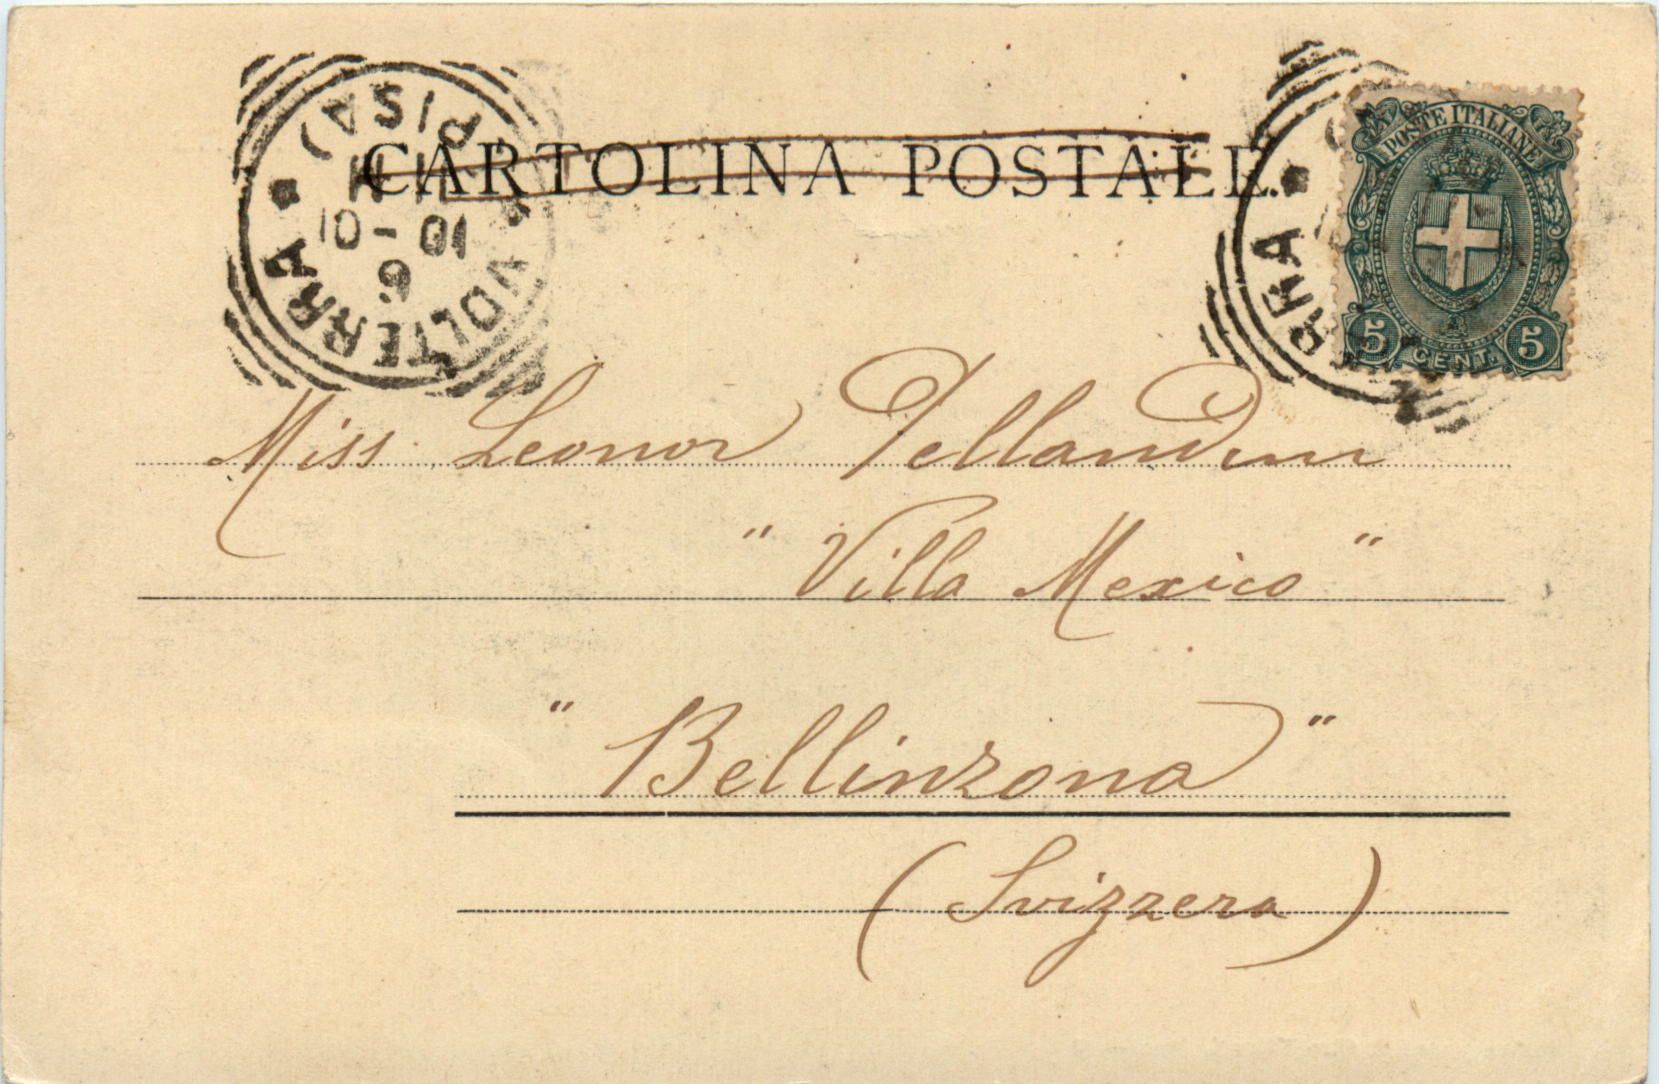 CARTOLINA POSTALE.
VOLTERRA
(PISA)
POSTE ITALIANE
5 CENT. 5
Miss Leonor Pellandini
"Villa Mexico"
"Bellinzona"
(Svizzera)